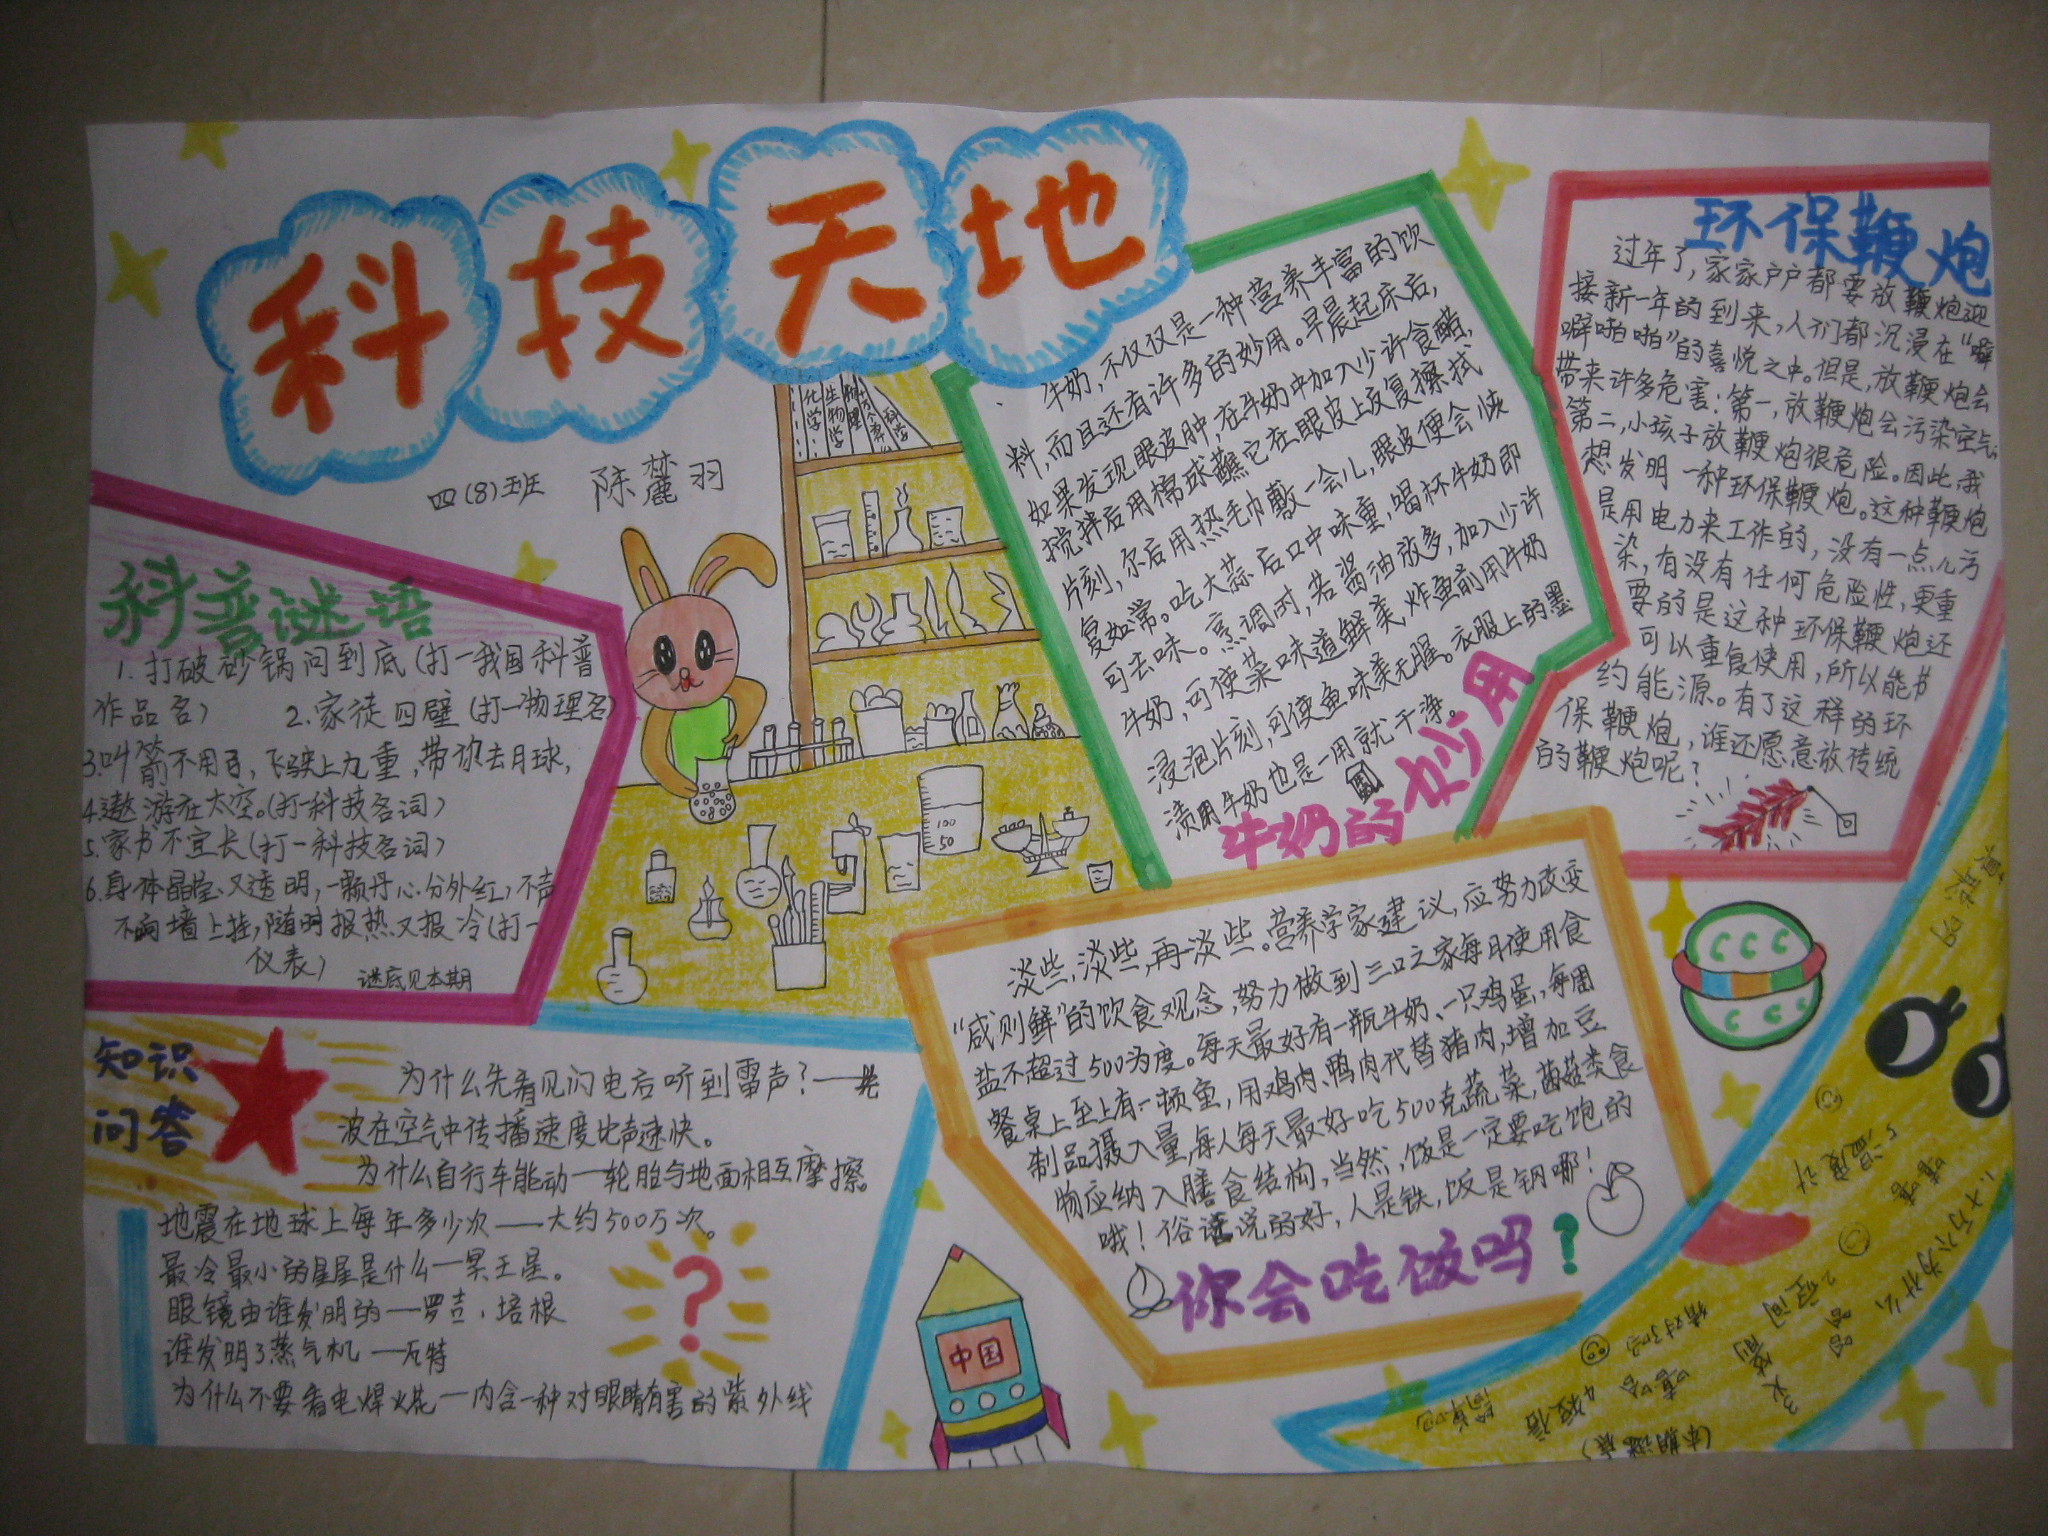 科技天地
四(8)班 陈麓羽
化学
生物学
物理
科学
科普谜语
1.打破砂锅问到底(打一我国科普
作品名) 2.家徒四壁(打一物理名)
3.叫箭不用弓,飞驶上九重,带你去月球,
4.遨游在太空。(打一科技名词)
5.家书不宜长(打一科技名词)
6.身体晶莹又透明,一颗丹心分外红,不声
不响墙上挂,随时报热又报冷(打一
仪表)
谜底见本期
知识
问答
为什么先看见闪电后听到雷声?——光
波在空气中传播速度比声速快。
为什么自行车能动—轮胎与地面相互摩擦。
地震在地球上每年多少次——大约500万次。
最冷最小的星星是什么—冥王星。
眼镜由谁发明的—罗吉.培根
谁发明了蒸气机—瓦特
为什么不要看电焊火花—内含一种对眼睛有害的紫外线
?
100
50
牛奶,不仅仅是一种营养丰富的饮
料,而且还有许多的妙用。早晨起床后,
如果发现眼皮肿,在牛奶中加入少许食醋,
搅拌后用棉球蘸它在眼皮上反复擦拭
片刻,尔后用热毛巾敷一会儿,眼皮便会恢
复如常。吃大蒜后口中味重,喝杯牛奶即
可去味。烹调时,若酱油放多,加入少许
牛奶,可使菜味道鲜美,炸鱼前用牛奶
浸泡片刻,可使鱼味美无腥。衣服上的墨
渍用牛奶也是一用就干净。
牛奶的妙用
环保鞭炮
过年了,家家户户都要放鞭炮迎
接新一年的到来,人们都沉浸在“噼
噼啪啪”的喜悦之中。但是,放鞭炮会
带来许多危害:第一,放鞭炮会污染空气;
第二,小孩子放鞭炮很危险。因此,我
想发明一种环保鞭炮。这种鞭炮
是用电力来工作的,没有一点儿污
染,有没有任何危险性,更重
要的是这种环保鞭炮还
可以重复使用,所以能节
约能源。有了这样的环
保鞭炮,谁还愿意放传统
的鞭炮呢?
淡些,淡些,再淡些。营养学家建议,应努力改变
“咸则鲜”的饮食观念,努力做到三口之家每月使用食
盐不超过500为度。每天最好有一瓶牛奶、一只鸡蛋,每周
餐桌上至上有一顿鱼,用鸡肉、鸭肉代替猪肉,增加豆
制品摄入量,每人每天最好吃500克蔬菜,菌菇类食
物应纳入膳食结构,当然,饭是一定要吃饱的
哦!俗话说的好,人是铁,饭是钢哪!
你会吃做吗?
中国
1.十万个为什么
2.空间
3.火箭
4.短信
5.温度计
猜对了吗